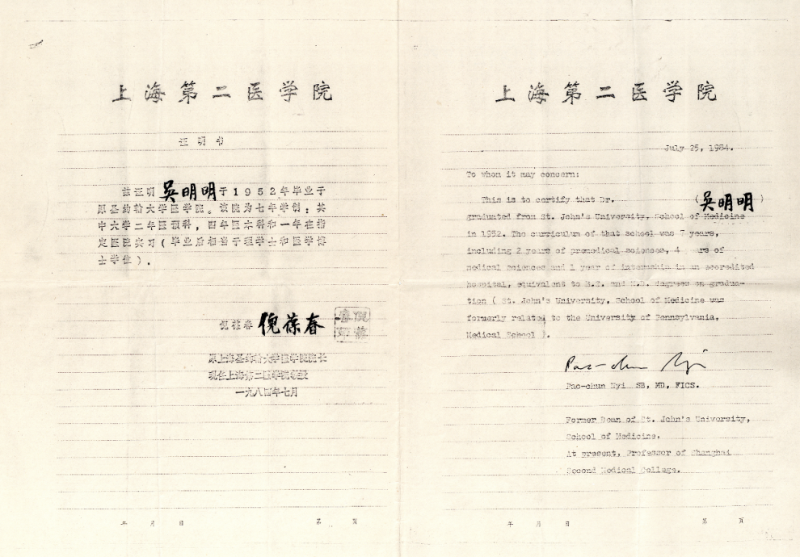 上海第二医学院
证明书
兹证明吴明明于1952年毕业于
原圣约翰大学医学院。该院为七年学制：其
中大学二年医预科，四年医本科和一年在指
定医院实习（毕业后相当于理学士和医学博
士学位）。
倪葆春 倪葆春
原上海圣约翰大学医学院院长
现任上海第二医学院教授
一九八四年七月
年 月 日 第 页
上海第二医学院
July 25, 1984.
To whom it may concern:
This is to certify that Dr. (吴明明)
graduated from St. John's University, School of Medicine
in 1952. The curriculum of that school was 7 years,
including 2 years of premedical sciences, 4 years of
medical sciences and 1 year of internship in an accredited
hospital, equivalent to B.S. and M.D. degrees on gradua-
tion ( St. John's University, School of Medicine was
formerly related to the University of Pennsylvania,
Medical School ).
Pao-chun Nyi
Pao-chun Nyi SB, MD, FICS.
Former Dean of St. John's University,
School of Medicine.
At present, Professor of Shanghai
Second Medical College.
年 月 日 第 页